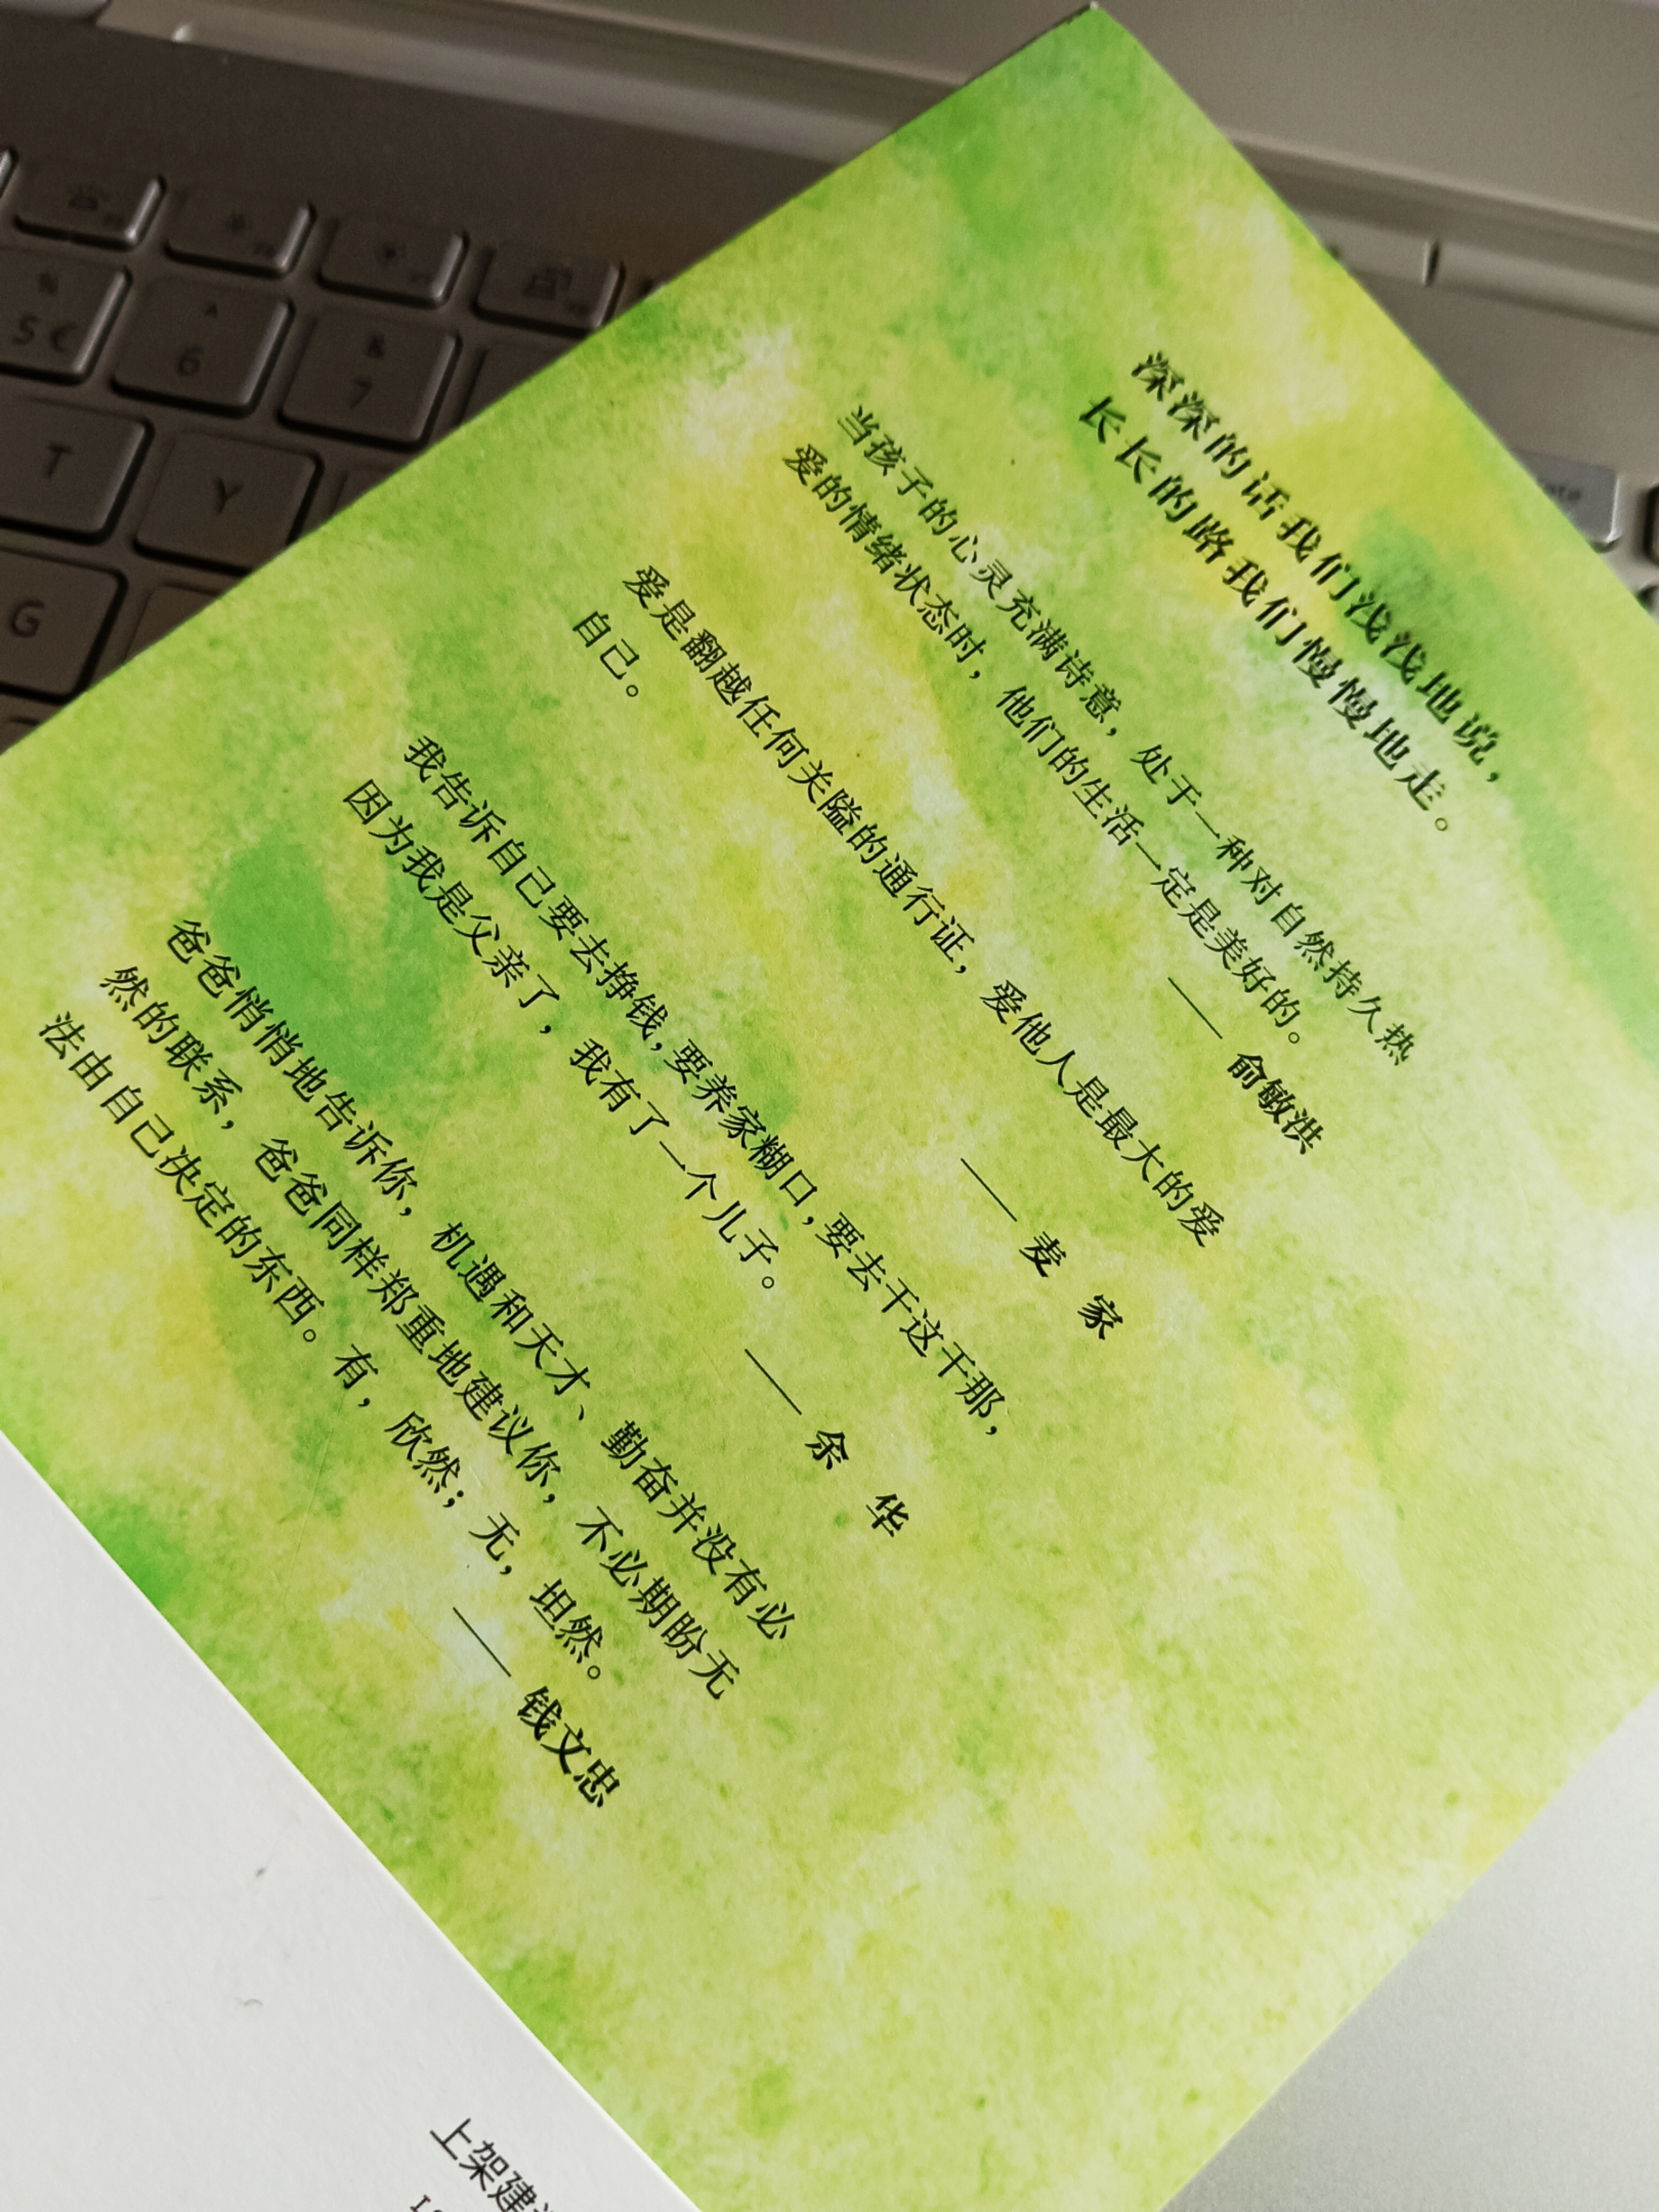 深深的话我们浅浅地说，
长长的路我们慢慢地走。
当孩子的心灵充满诗意，处于一种对自然持久热
爱的情绪状态时，他们的生活一定是美好的。
—— 俞敏洪
爱是翻越任何关隘的通行证，爱他人是最大的爱
自己。
—— 麦 家
我告诉自己要去挣钱，要养家糊口，要去干这干那，
因为我是父亲了，我有了一个儿子。
—— 余 华
爸爸悄悄地告诉你，机遇和天才、勤奋并没有必
然的联系，爸爸同样郑重地建议你，不必期盼无
法由自己决定的东西。有，欣然；无，坦然。
—— 钱文忠
上架建
5 €
6
7
T
Y
G